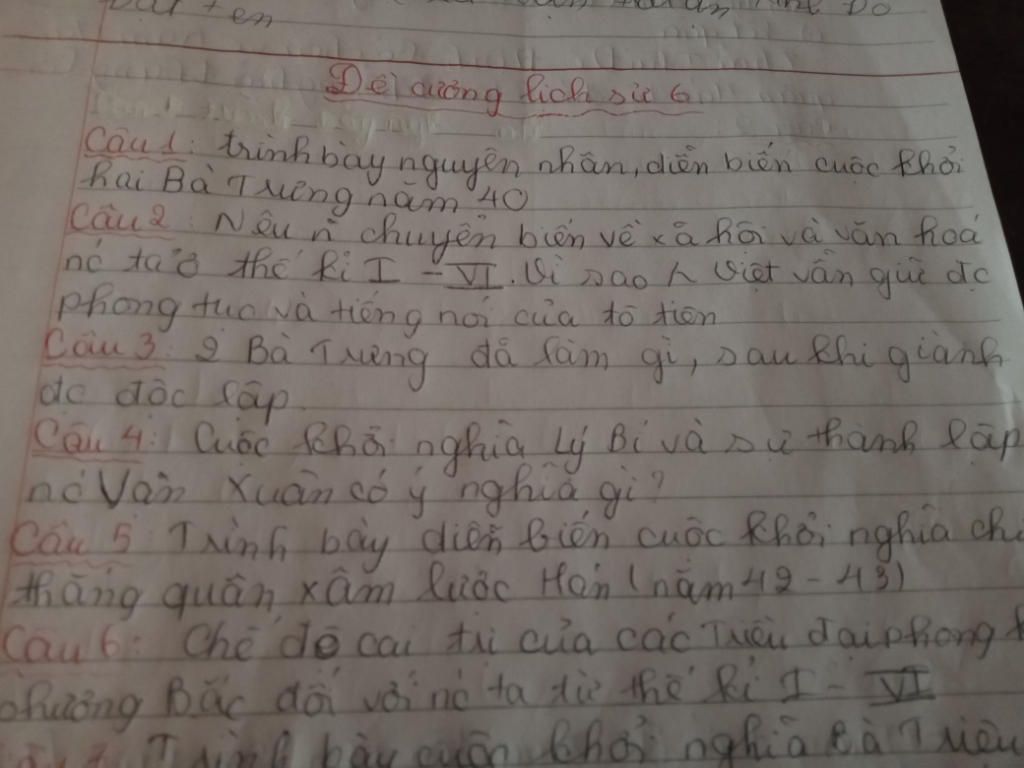 Đề cương lịch sử 6
Câu 1: trình bày nguyên nhân, diễn biến cuộc khởi
hai Bà Trưng năm 40
Câu 2: Nêu n~ chuyển biến về xã hội và văn hoá
nc ta ở thế kỉ I - VI. Vì sao Việt vẫn giữ đc
phong tục và tiếng nói của tổ tiên
Câu 3: 2 Bà Trưng đã làm gì, sau khi giành
đc độc lập.
Câu 4: Cuộc khởi nghĩa Lý Bí và sự thành lập
nc Vạn Xuân có ý nghĩa gì?
Câu 5 Trình bày diễn biến cuộc khởi nghĩa
thắng quân xâm lược Hán (năm 42 - 43)
Câu 6: Chế độ cai trị của các Triều đại phong
phương Bắc đối với nc ta từ thế kỉ I - VI
Trình bày cuộc khởi nghĩa Bà Triệu